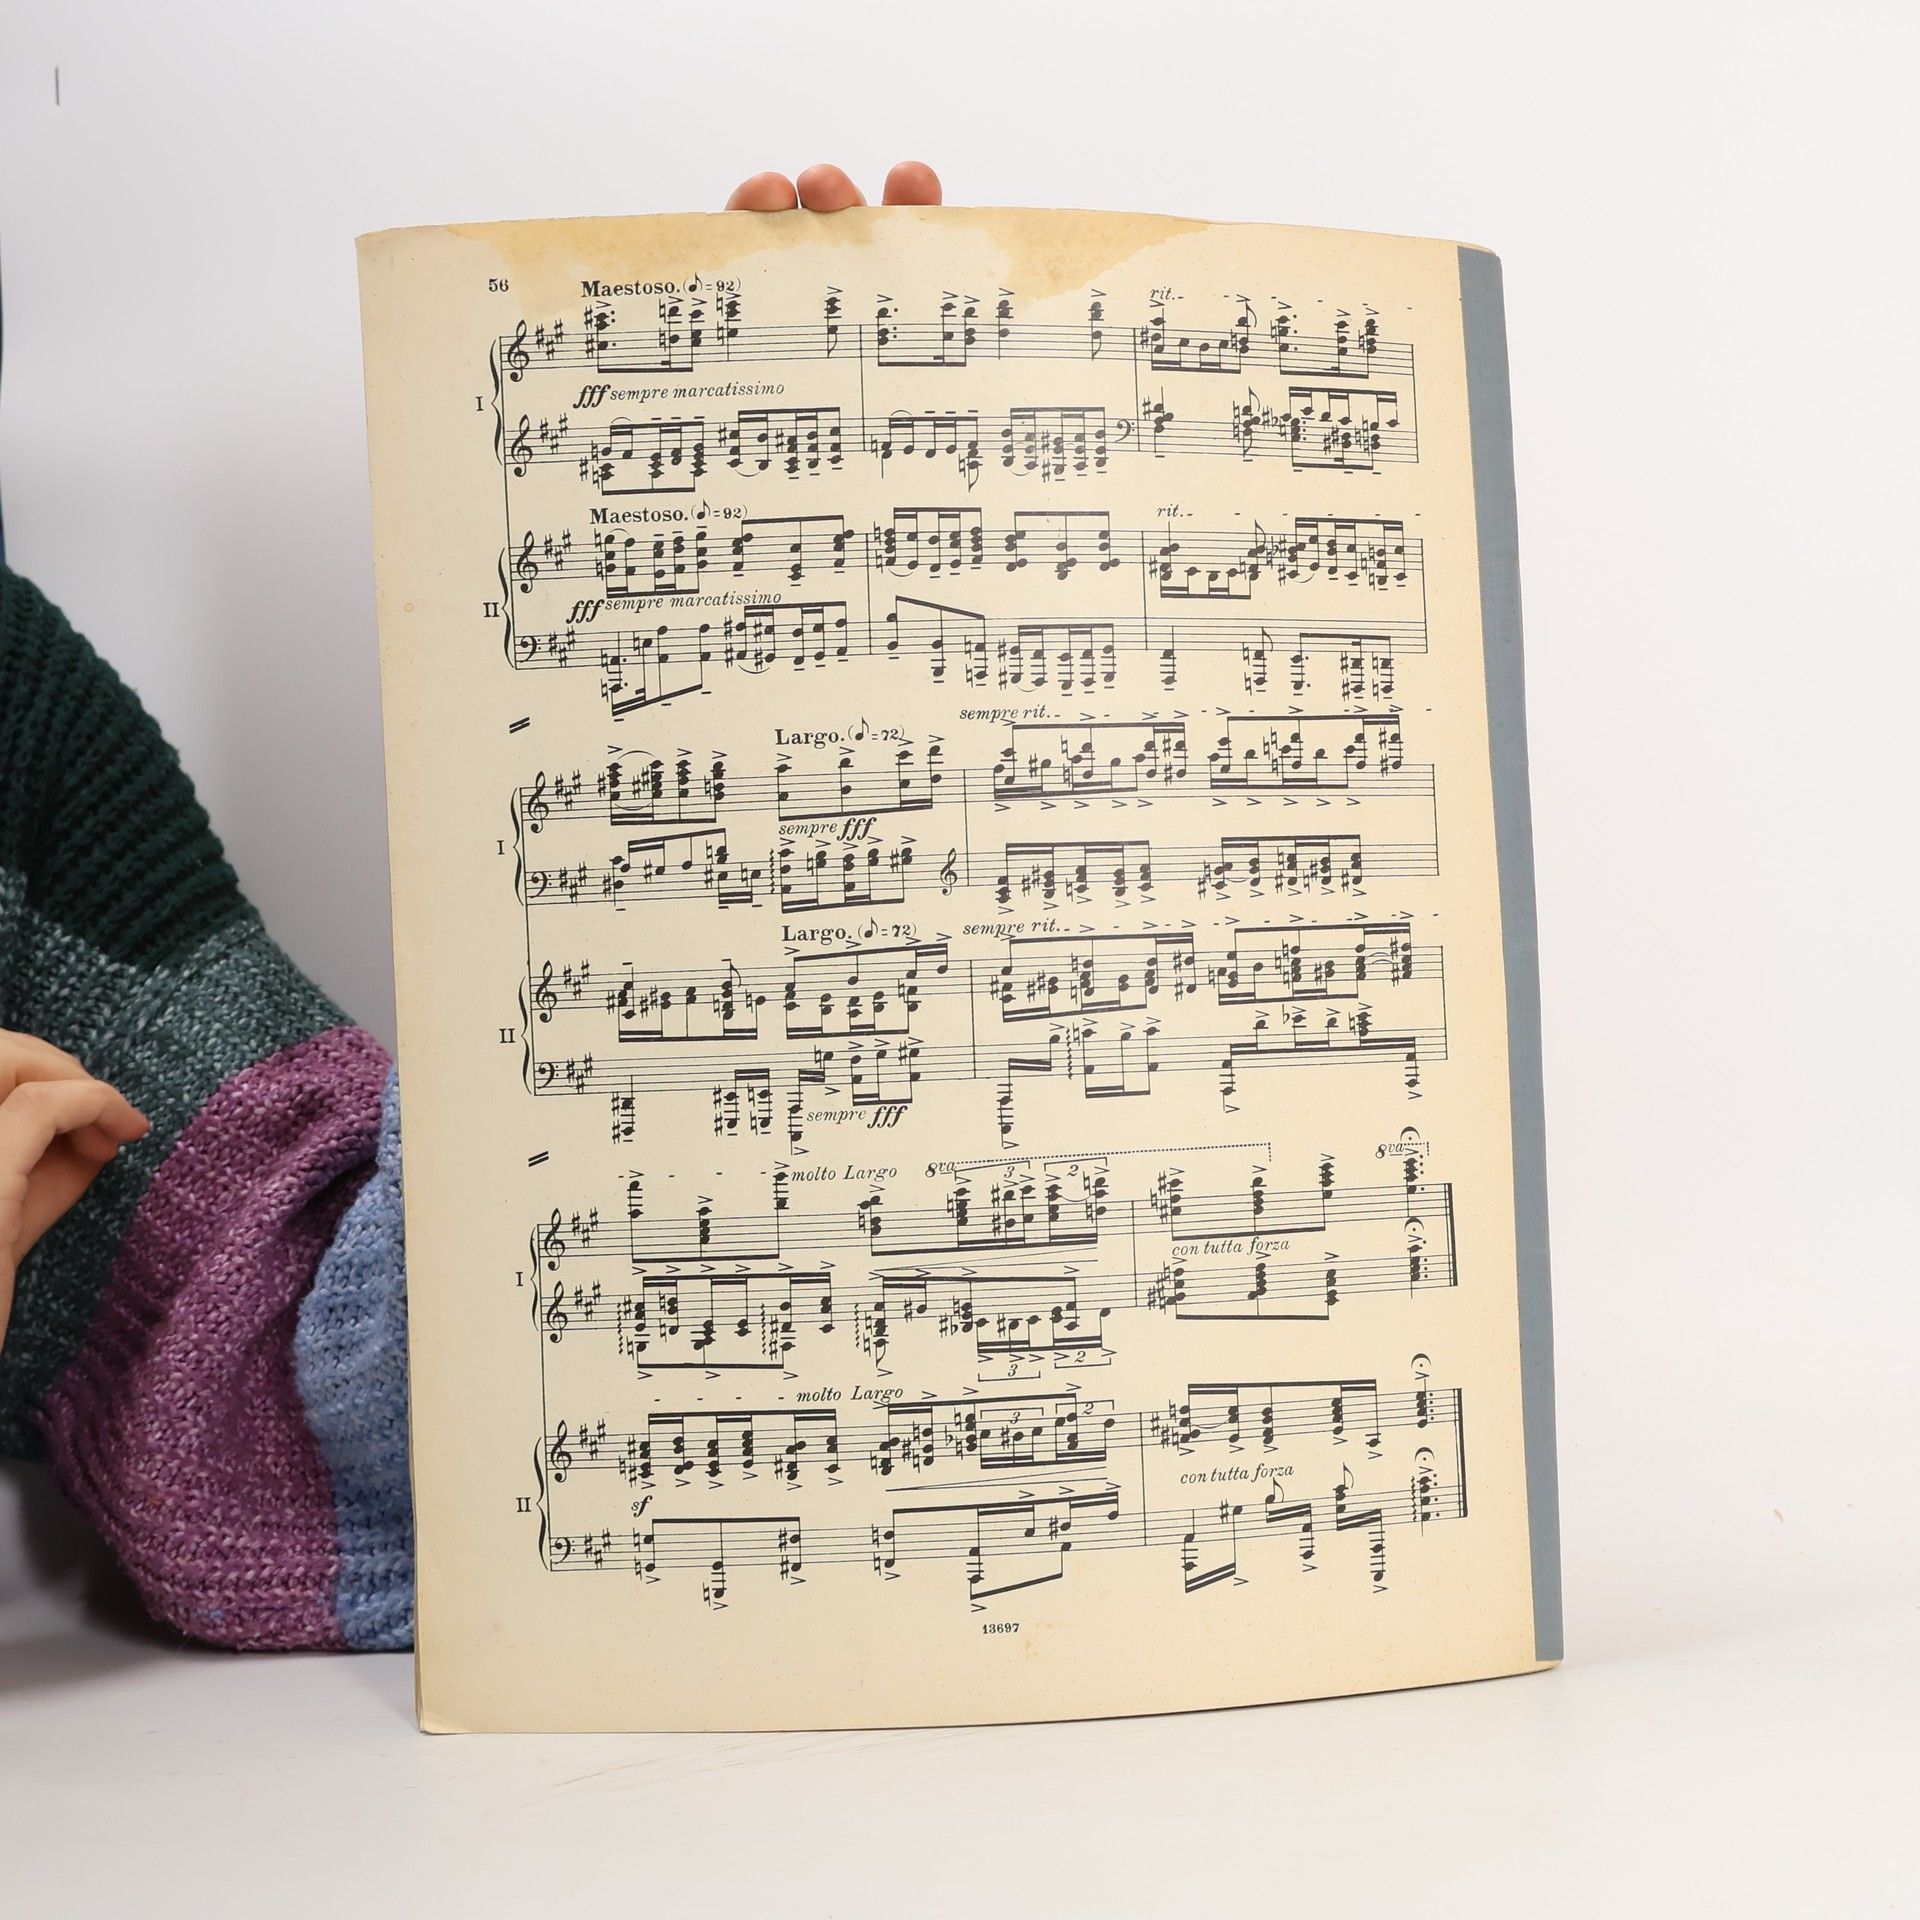 56 Maestoso. (♪=92) rit.
I fff sempre marcatissimo
Maestoso. (♪=92) rit.
II fff sempre marcatissimo
Largo. (♪=72) sempre rit.
I sempre fff
Largo. (♪=72) sempre rit.
II sempre fff
molto Largo 8va 3 2 8va
I con tutta forza
3 2
molto Largo 3 2
II sf con tutta forza
13697